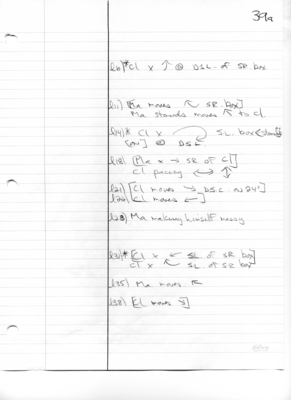 39a
l6)* Cl x ↑ @ DSL of SR box
l11) [Ma moves ↖ SR box]
Ma stands moves ↖ to Cl
l14)* Cl x SL box
@ DSC
l18) [Ma x → SR of Cl]
Cl pacing ↔ ↕
l21) [Cl moves → DSC ~24"]
[Cl moves ←]
Ma making himself messy
l31)* [Cl x ← SL of SR box]
Cl x ↖ SL of SR box
l35) Ma moves ↖
l38) [Cl moves]